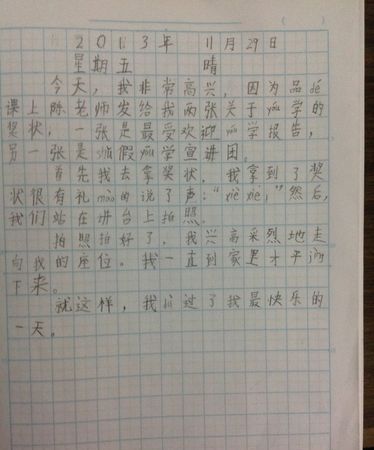 2013年 11月29日
星期五 晴
今天，我非常高兴，因为品dé
课上陈老师发给我两张关于yóu学的
奖状，一张是最受欢迎yóu学报告，
另一张是shǔ假yóu学宣讲团。
首先我去拿奖状，我拿到了奖
状很有礼mào的说了声：“xiè xiè，”然后，
我们站在讲台上拍照。
拍照拍好了，我兴高采烈地走
向我的座位。我一直到家里才平
下来。
就这样，我过了我最快乐的
一天。